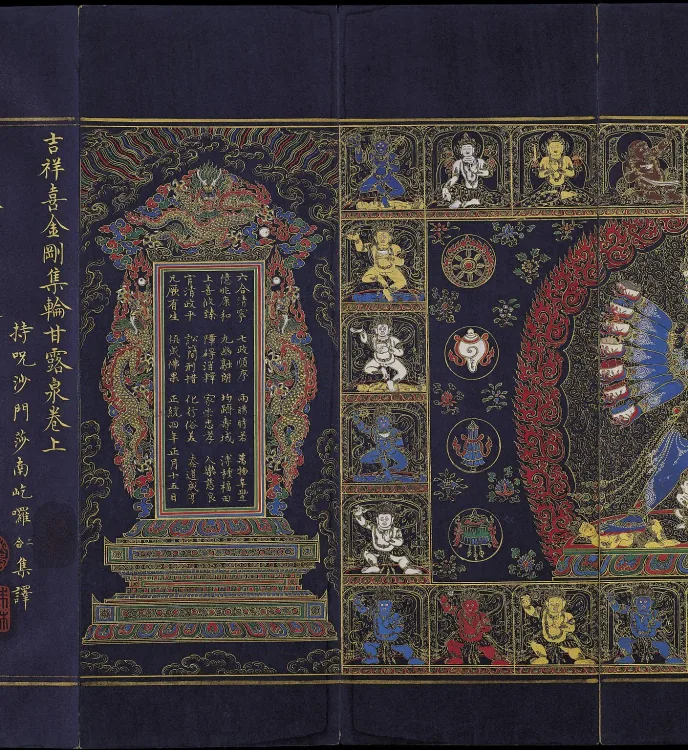 六合清寧 七政順序 雨暘時若 萬物阜豐
億兆康和 九幽融朗 均躋壽域 溥種福田
上善攸臻 障礙消釋 家崇忠孝 人樂慈良
官清政平 訟簡刑措 化行俗美 泰道咸亨
凡厥有生 俱成佛果 正統四年正月十五日
吉祥喜金剛集輪甘露泉卷上
持呪沙門莎南屹囉二合集譯